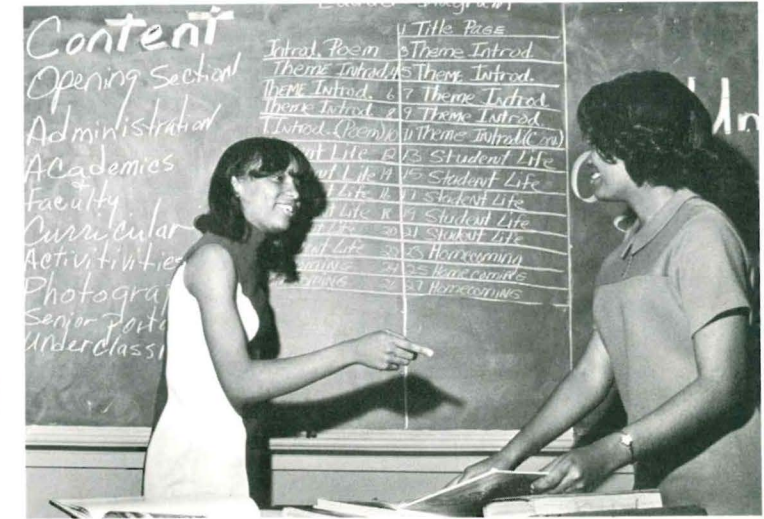 Content
Opening Section
Administration
Academics
&
Faculty
Curricular
Activitivities
Senior
Diagram
1 Title Page
Introd. Poem 3 Theme Introd.
Theme Introd. 4 5 Theme Introd.
Theme Introd. 6 7 Theme Introd.
Theme Introd. 8 9 Theme Introd.
Introd. (Poem) 10 11 Theme Introd (Con)
Life 12 13 Student Life
Life 14 15 Student Life
Life 16 17 Student Life
Life 18 19 Student Life
Life 20 21 Student Life
Life 22 23 Homecoming
25 Homecoming
27 Homecoming